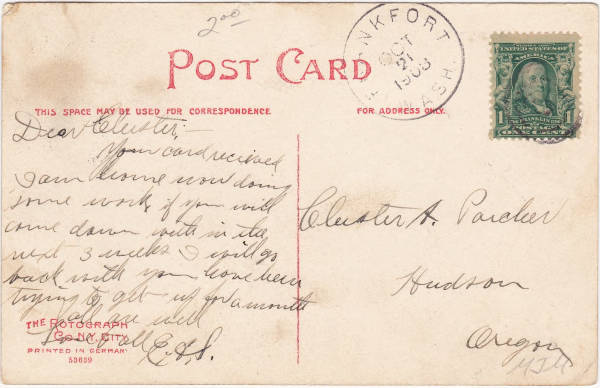 2.00
FRANKFORT
OCT
21
1908
WASH.
POST CARD
UNITED STATES OF
AMERICA
1 1
FRANKLIN
POSTAGE
ONE CENT
THIS SPACE MAY BE USED FOR CORRESPONDENCE
FOR ADDRESS ONLY.
Dear Cluster;—
Your card recieved
I am home now doing
some work, if you will
come down with in the
next 3 weeks I will go
back with you have been
trying to get up for a month
all are well
Love to all E.A.S.
Cluster A. Parcher
Hudson
Oregon
THE ROTOGRAPH
CO. N.Y. CITY
PRINTED IN GERMANY
53659